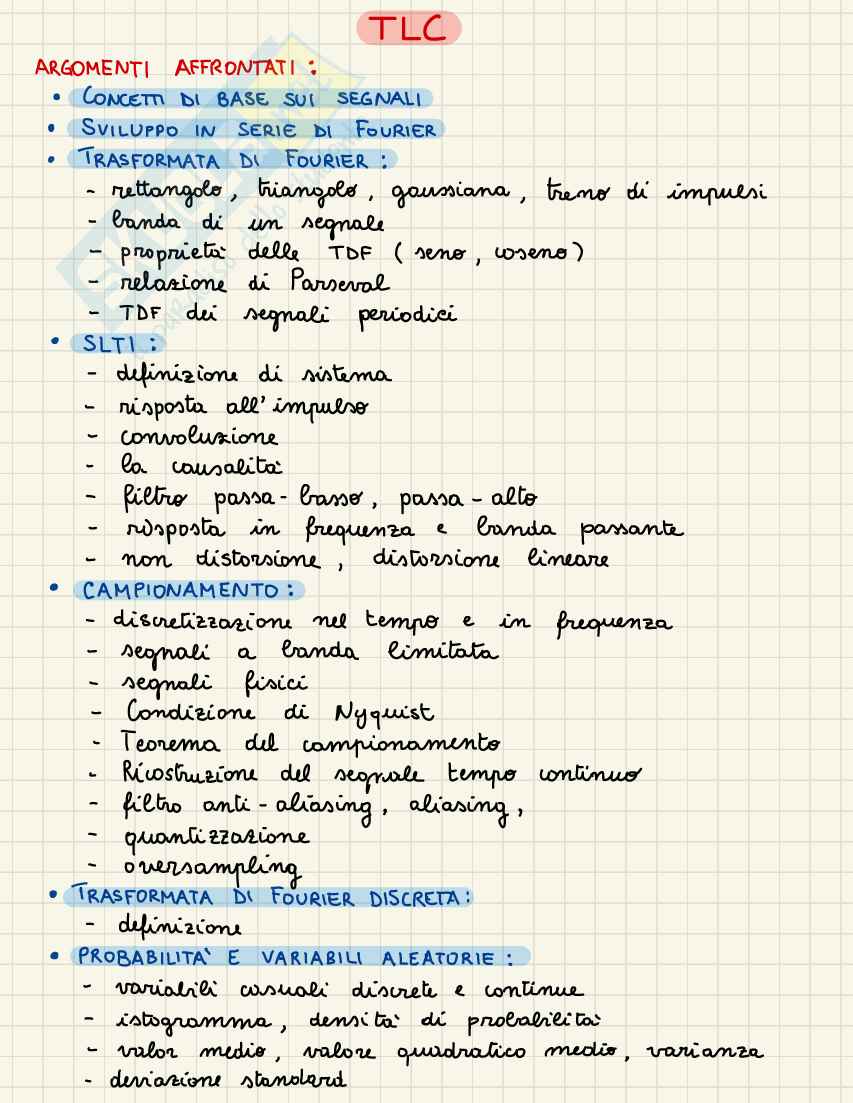 TLC
ARGOMENTI AFFRONTATI :
• CONCETTI DI BASE SUI SEGNALI
• SVILUPPO IN SERIE DI FOURIER
• TRASFORMATA DI FOURIER :
- rettangolo, triangolo, gaussiana, treno di impulsi
- banda di un segnale
- proprietà delle TDF ( seno, coseno )
- relazione di Parseval
- TDF dei segnali periodici
• SLTI :
- definizione di sistema
- risposta all'impulso
- convoluzione
- la causalità
- filtro passa-basso, passa-alto
- risposta in frequenza e banda passante
- non distorsione, distorsione lineare
• CAMPIONAMENTO :
- discretizzazione nel tempo e in frequenza
- segnali a banda limitata
- segnali fisici
- Condizione di Nyquist
- Teorema del campionamento
- Ricostruzione del segnale tempo continuo
- filtro anti-aliasing, aliasing,
- quantizzazione
- oversampling
• TRASFORMATA DI FOURIER DISCRETA :
- definizione
• PROBABILITA' E VARIABILI ALEATORIE :
- variabili casuali discrete e continue
- istogramma, densità di probabilità
- valor medio, valore quadratico medio, varianza
- deviazione standard